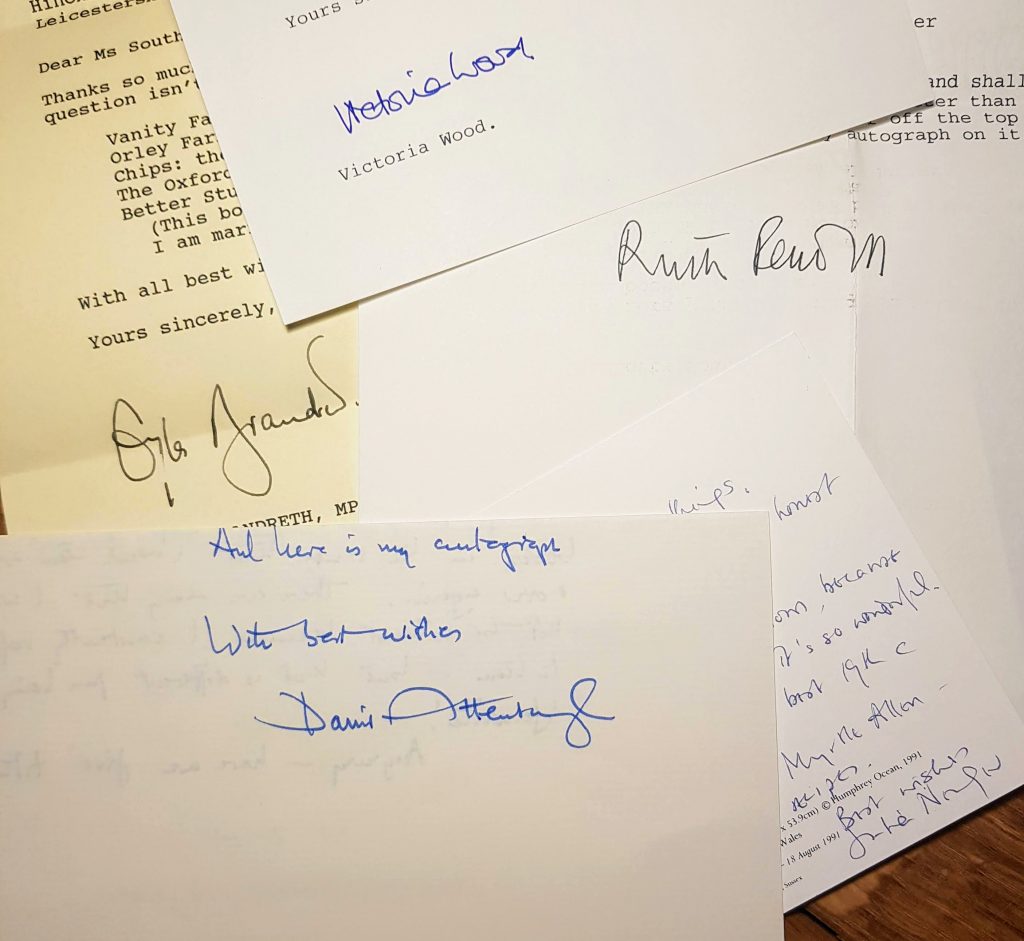 Leicesters
Dear Ms South
Thanks so muc
question isn't
Vanity Fa
Orley Far
Chips: the
The Oxford
Better Stu
(This bo
I am mar
With all best wi
Yours sincerely,
Gyles Brandreth
NDRETH, MP
Yours s
Victoria Wood
Victoria Wood.
er
and shall
er than
off the top
autograph on it
Ruth Rendell
And here is my autograph
With best wishes
David Attenborough
things.
honest
because
it's so wonderful.
best 19th c
Myrtle Allen -
recipes.
Best wishes
x 53.9cm) © Humphrey Ocean, 1991
Wales
- 18 August 1991
Sussex